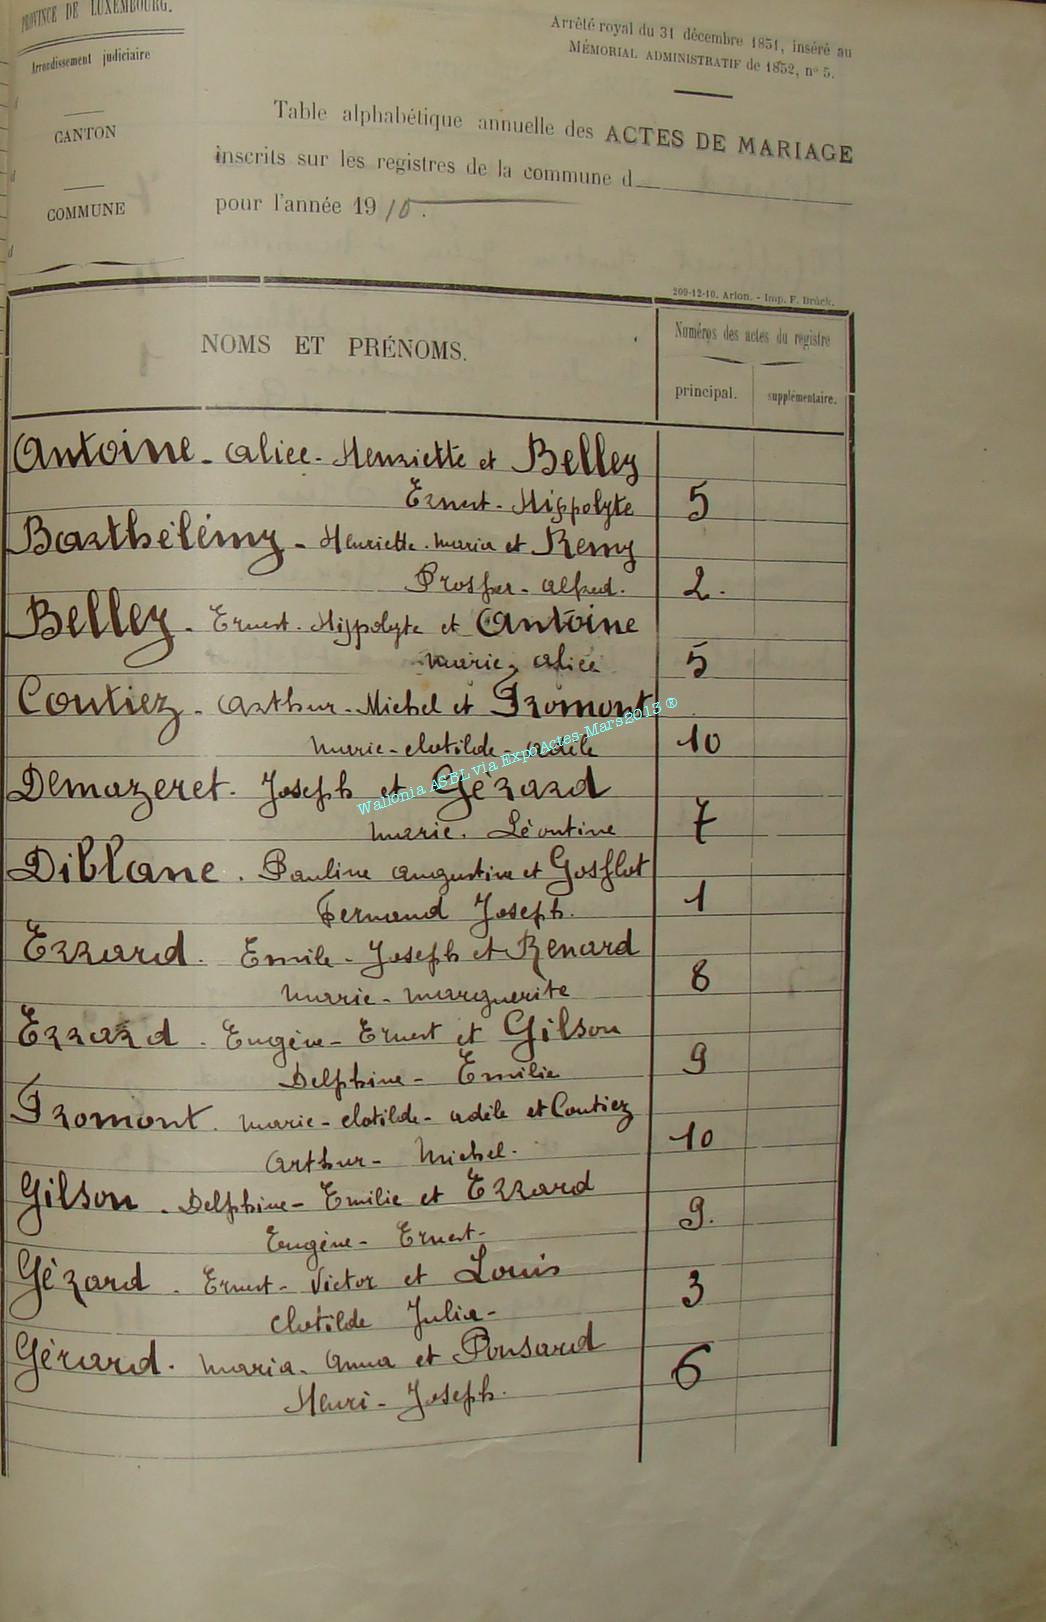 PROVINCE DE LUXEMBOURG.
Arrondissement judiciaire
d
CANTON
d
COMMUNE
d
Arrêté royal du 31 décembre 1851, inséré au
MÉMORIAL ADMINISTRATIF de 1852, n° 5.
Table alphabétique annuelle des ACTES DE MARIAGE
inscrits sur les registres de la commune d
pour l'année 1910.
209-12-10. Arlon. - Imp. F. Brück.
NOMS ET PRÉNOMS.
Numéros des actes du registre
principal. supplémentaire.
Antoine - Alice - Henriette et Belley
Ernest - Hippolyte 5
Barthélémy - Henriette - Maria et Remy
Prosper - Alfred. 2.
Belley - Ernest - Hippolyte et Antoine
Marie - Alice 5
Coutiez - Arthur - Michel et Fromont
Marie - Clotilde - Adèle 10
Demazeret - Joseph et Gérard
Marie - Léontine 7
Diblane - Pauline Augustine et Gofflot
Fernand Joseph. 1
Errard - Emile - Joseph et Renard
Marie - Marguerite 8
Errard - Eugène - Ernest et Gilson
Delphine - Emilie 9
Fromont - Marie - Clotilde - Adèle et Coutiez
Arthur - Michel. 10
Gilson - Delphine - Emilie et Errard
Eugène - Ernest - 9.
Gérard - Ernest - Victor et Louis
Clotilde Julia - 3
Gérard - Maria - Anna et Ponsard
Henri - Joseph. 6
Wallonia ASBL via ExpoActes-Mars2013 ®